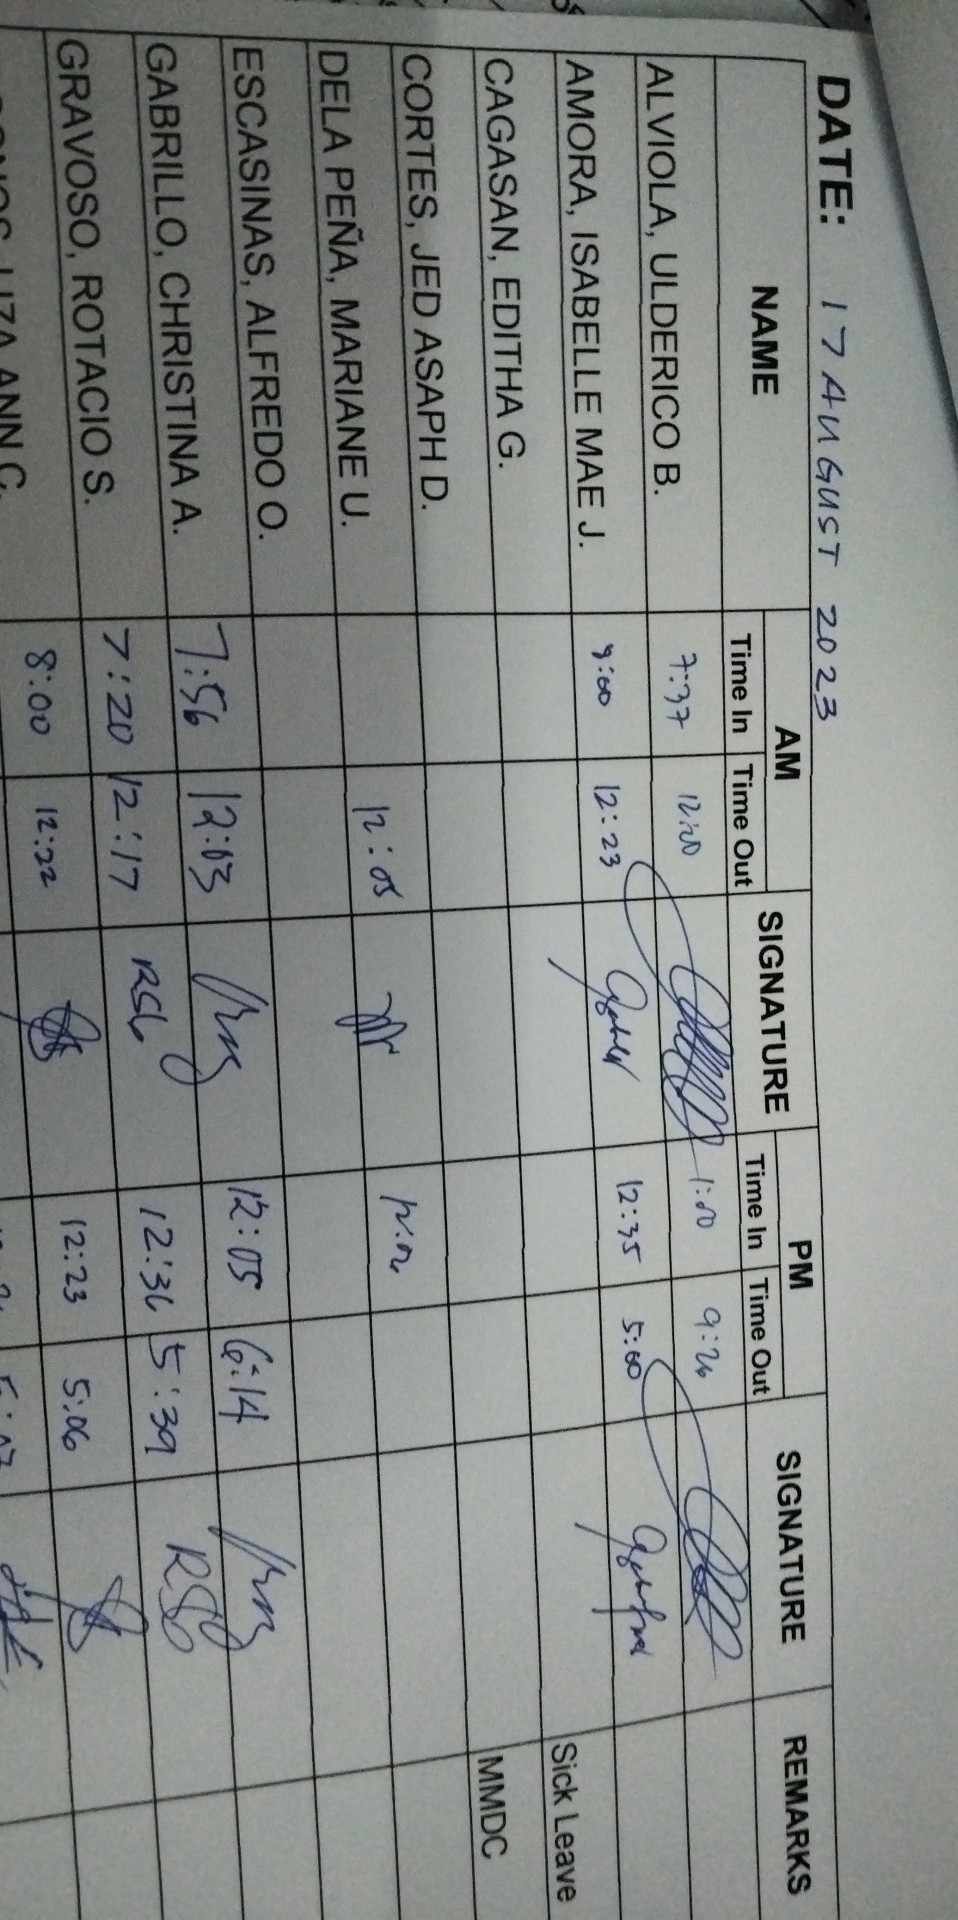 DATE: 17 AUGUST 2023
NAME AM SIGNATURE PM SIGNATURE REMARKS
Time In Time Out Time In Time Out
ALVIOLA, ULDERICO B. 7:37 12:00 1:00 9:26
AMORA, ISABELLE MAE J. 8:00 12:23 12:35 5:00
CAGASAN, EDITHA G. Sick Leave
CORTES, JED ASAPH D. MMDC
DELA PEÑA, MARIANE U. 12:05
ESCASINAS, ALFREDO O.
GABRILLO, CHRISTINA A. 7:56 12:03 12:05 6:14
GRAVOSO, ROTACIO S. 7:20 12:17 RSG 12:36 5:39 RSG
LIZA ANN C. 8:00 12:22 12:23 5:06